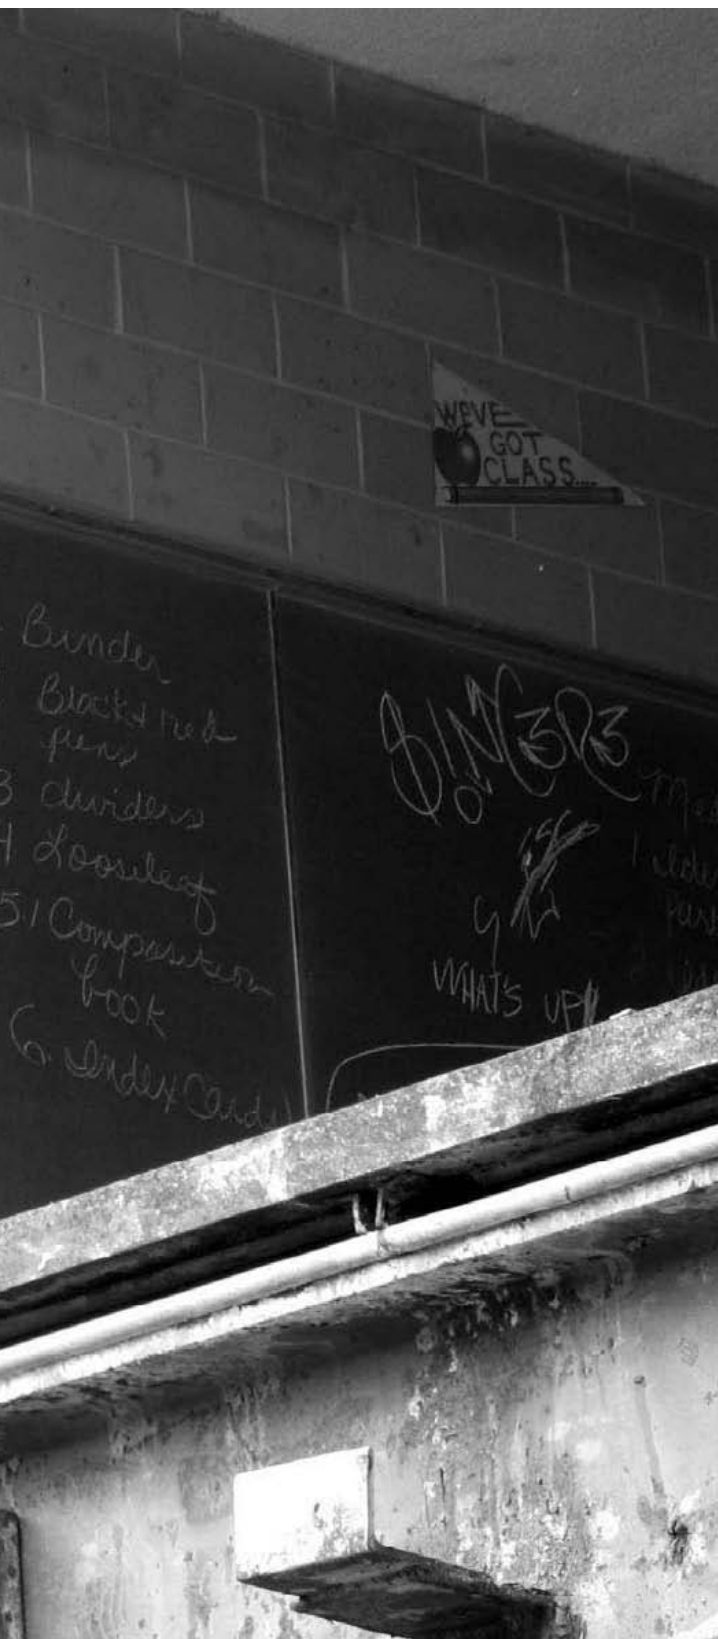 WE'VE
GOT
CLASS....
Binder
Black & red
pens
3 dividers
4 Looseleaf
5. 1 Composition
book
6. Index Cards
$!NC3R3
WHAT'S UP